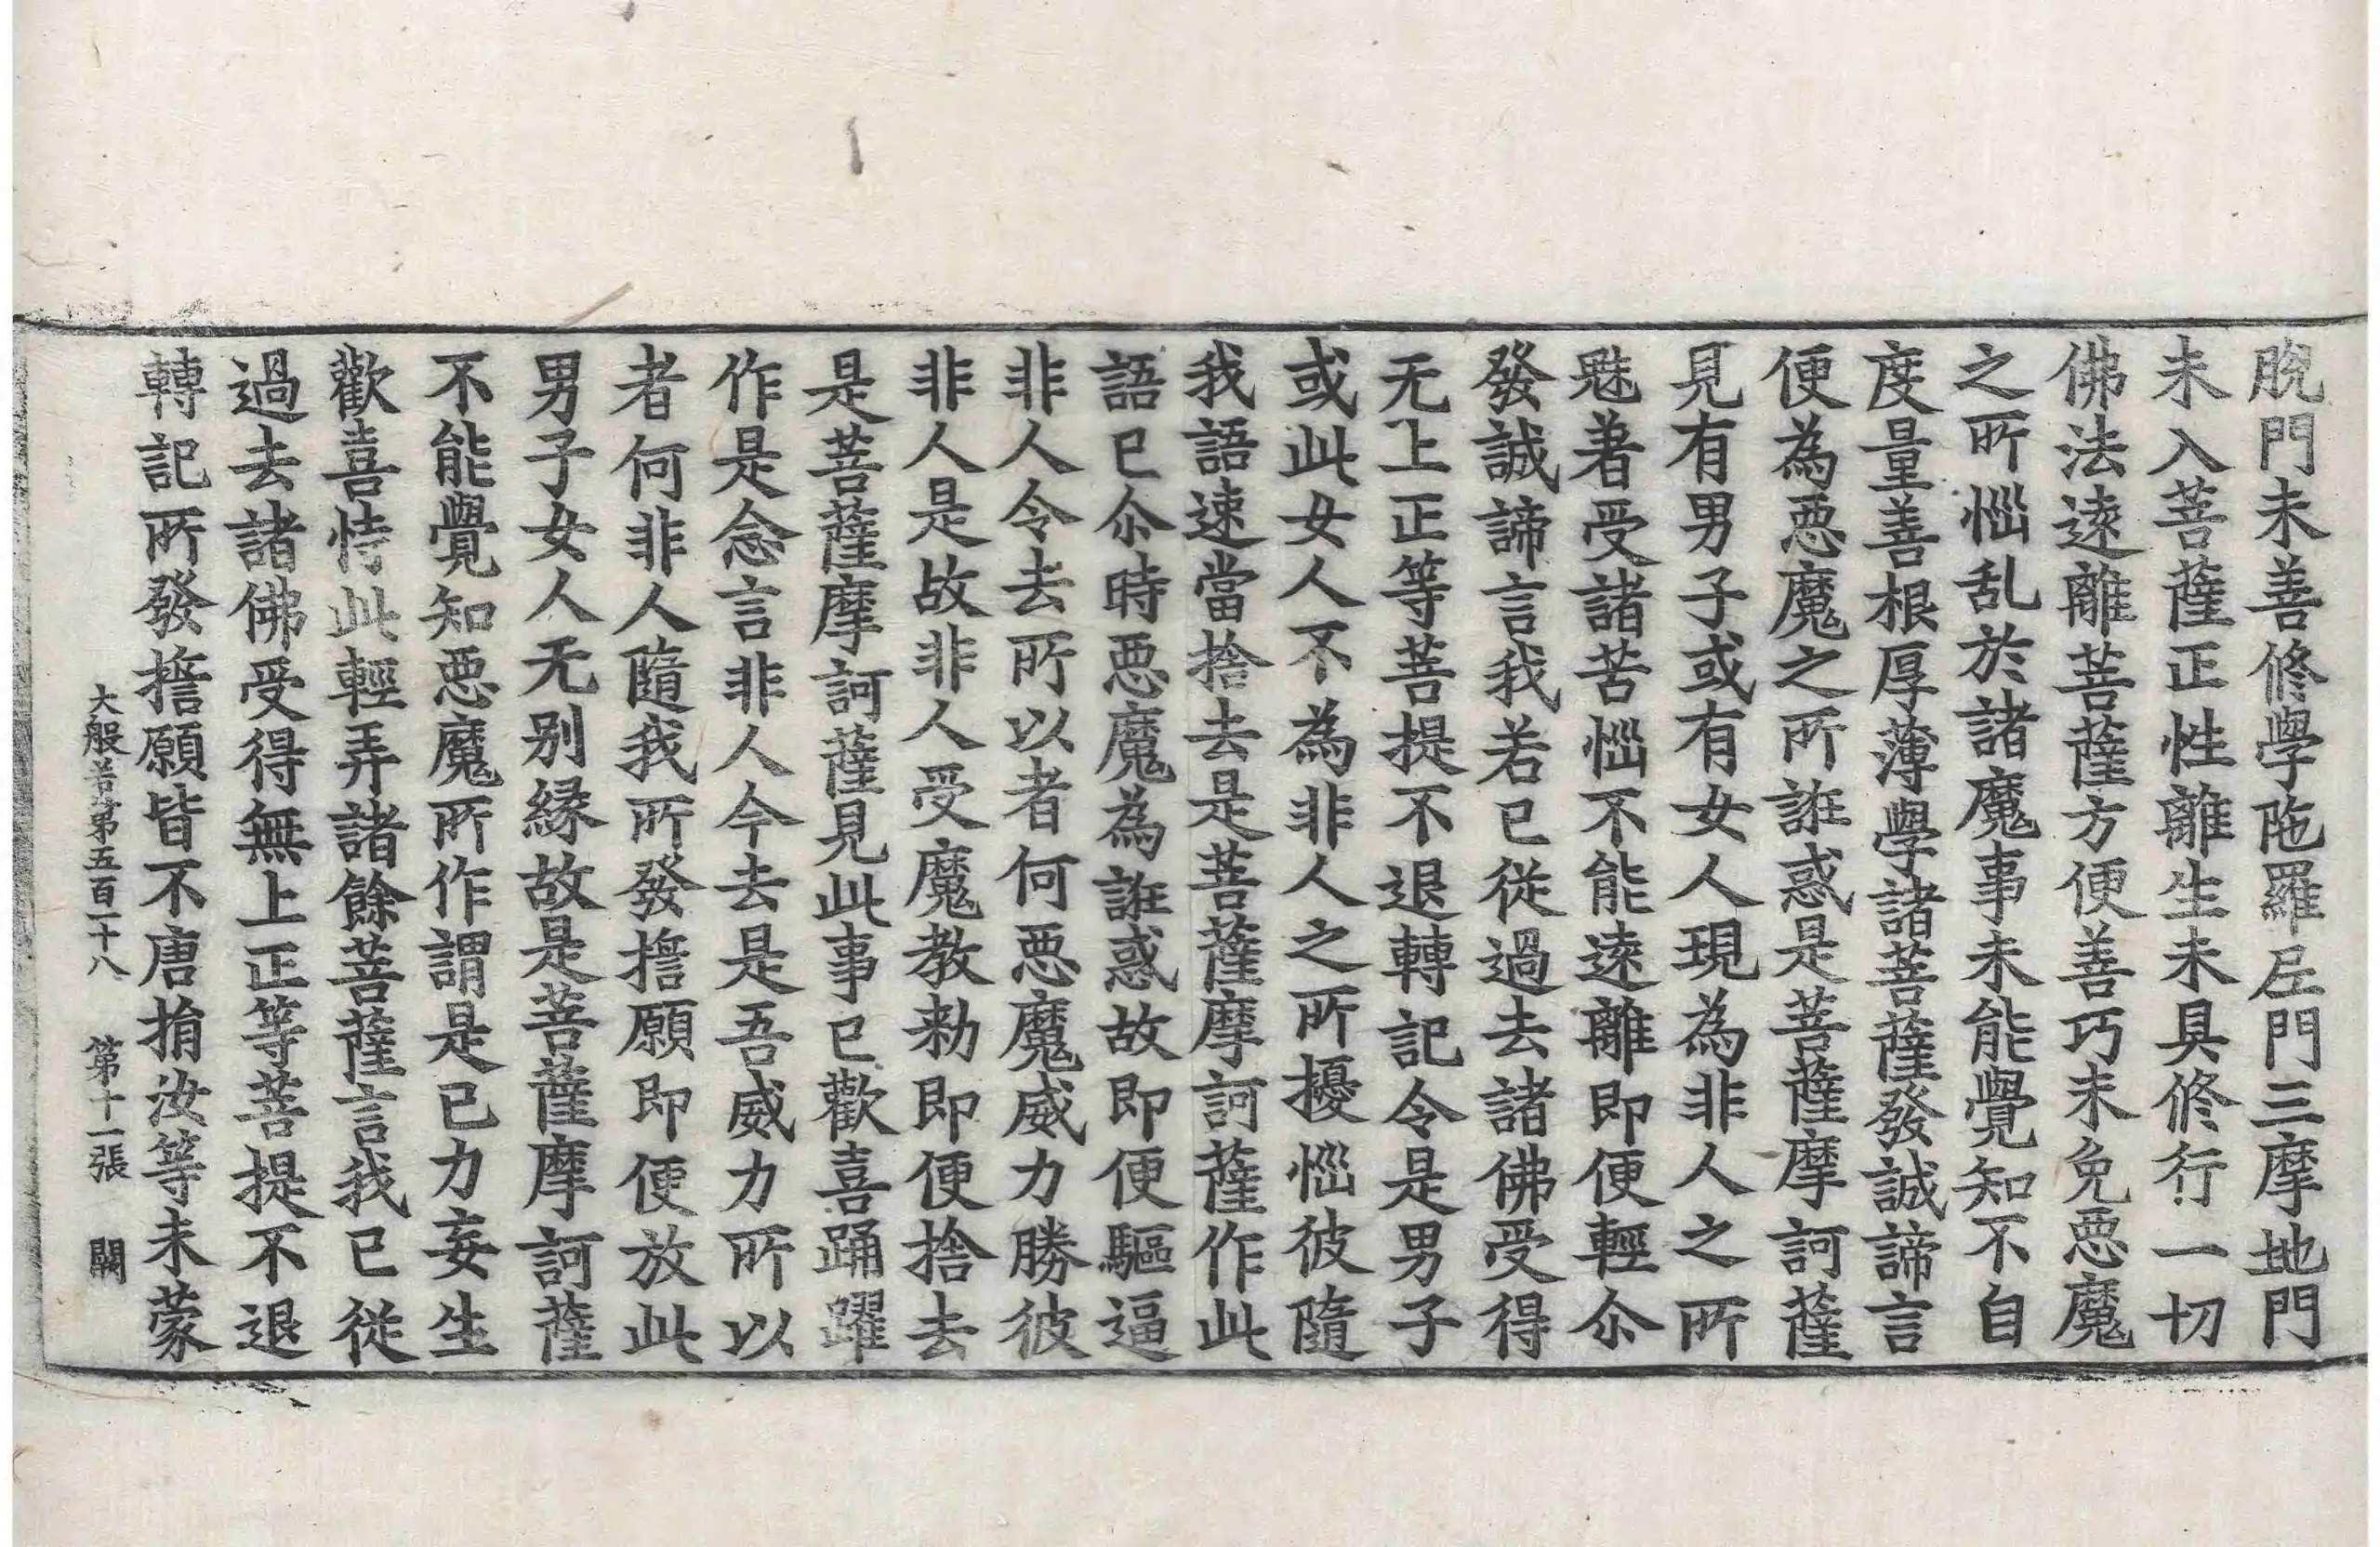 脫門未善修學陁羅尼門三摩地門
未入菩薩正性離生未具修行一切
佛法遠離菩薩方便善巧未免惡魔
之所惱乱於諸魔事未能覺知不自
度量善根厚薄學諸菩薩發誠諦言
便為惡魔之所誑惑是菩薩摩訶薩
見有男子或有女人現為非人之所
魅著受諸苦惱不能遠離即便輕尒
發誠諦言我若已從過去諸佛受得
无上正等菩提不退轉記令是男子
或此女人不為非人之所擾惱彼隨
我語速當捨去是菩薩摩訶薩作此
語已尒時惡魔為誑惑故即便驅逼
非人令去所以者何惡魔威力勝彼
非人是故非人受魔教勑即便捨去
是菩薩摩訶薩見此事已歡喜踊躍
作是念言非人今去是吾威力所以
者何非人隨我所發擔願即便放此
男子女人无別緣故是菩薩摩訶薩
不能覺知惡魔所作謂是已力妄生
歡喜恃此輕弄諸餘菩薩言我已從
過去諸佛受得無上正等菩提不退
轉記所發擔願皆不唐捐汝等未蒙
大般若第五百一十八 第十一張 闕